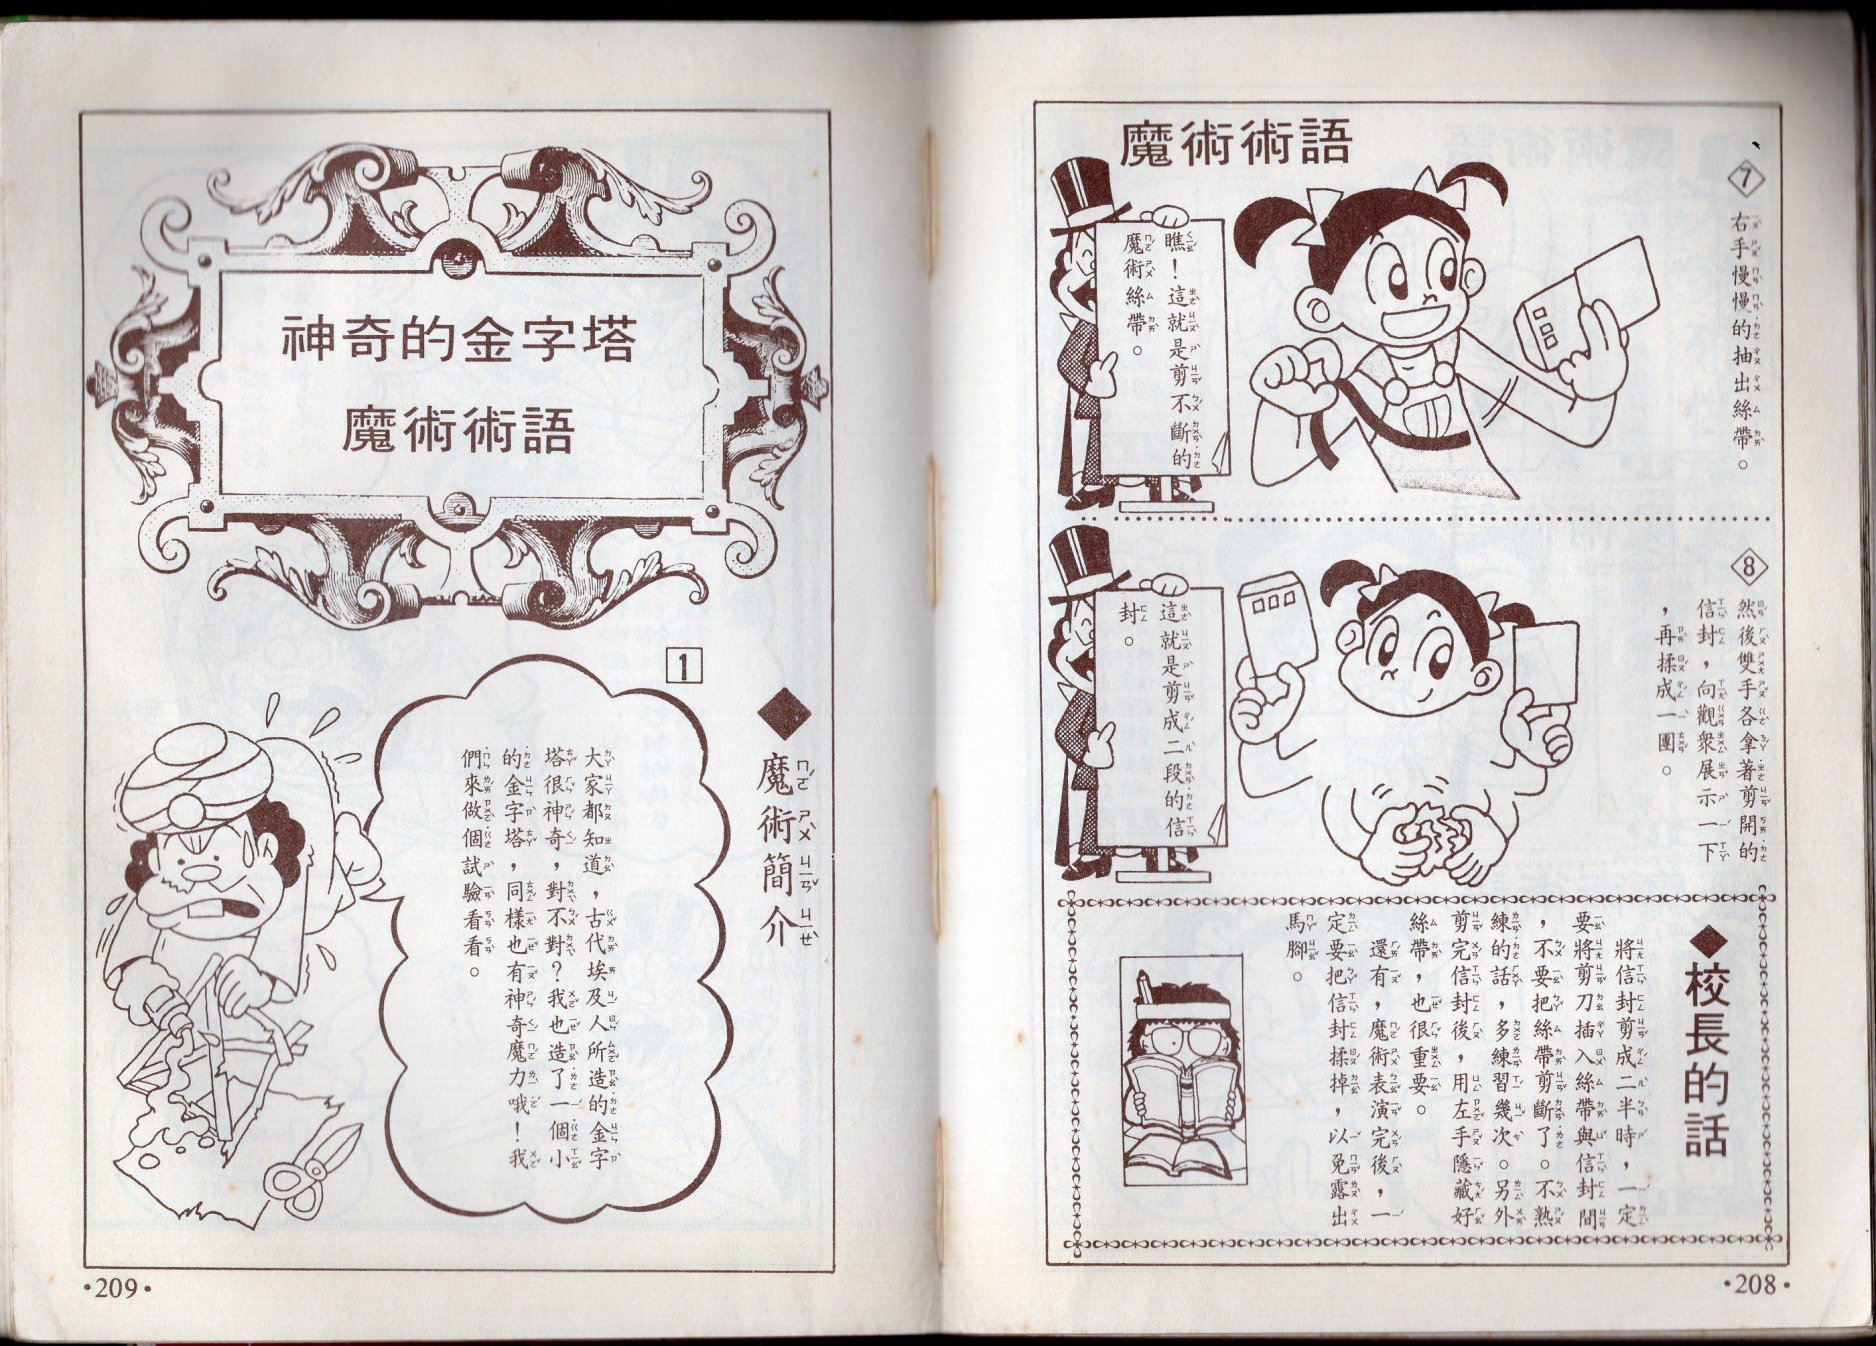 魔術術語
⑦
右手慢慢的抽出絲帶。
瞧！這就是剪不斷的
魔術絲帶。
⑧
然後雙手各拿著剪開的
信封，向觀衆展示一下
，再揉成一團。
這就是剪成二段的信
封。
◆校長的話
將信封剪成二半時，一定
要將剪刀插入絲帶與信封間
，不要把絲帶剪斷了。不熟
練的話，多練習幾次。另外
剪完信封後，用左手隱藏好
絲帶，也很重要。
還有，魔術表演完後，一
定要把信封揉掉，以免露出
馬腳。
·208·
神奇的金字塔
魔術術語
◆魔術簡介
1
大家都知道，古代埃及人所造的金字
塔很神奇，對不對？我也造了一個小
的金字塔，同樣也有神奇魔力哦！我
們來做個試驗看看。
·209·